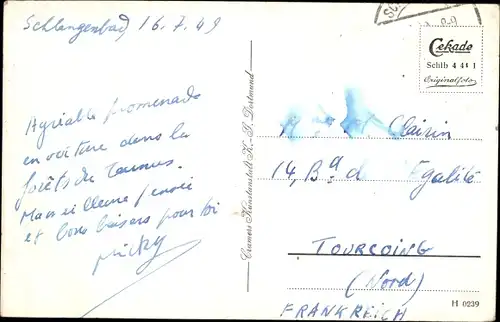 Schlangenbad, 16.7.49
Agréable promenade
en voiture dans les
forêts du Taunus.
Mes meilleures pensées
et bons baisers pour toi
Micky
Cramers Kunstanstalt K.-G., Dortmund
Cekade
Schlb 4 44 1
Originalfoto
Clairin
14, Bd de l'Egalité
TOURCOING
(Nord)
FRANKREICH
H 0239